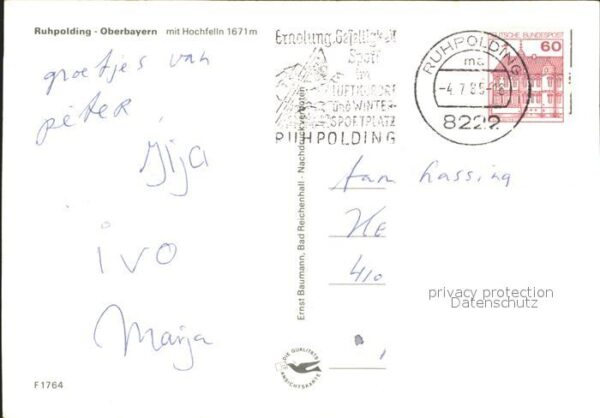 Ruhpolding - Oberbayern mit Hochfelln 1671 m
groetjes van
péter,
Gija
ivo
Marja
F 1764
Ernst Baumann, Bad Reichenhall - Nachdruck verboten
DIE QUALITÄTS
ANSICHTSKARTE
Erholung, Geselligkeit
Sport
im
LUFTKURORT
und WINTER-
SPORTPLATZ
RUHPOLDING
RUHPOLDING
ma
-4.7.85-16
8222
DEUTSCHE BUNDESPOST
60
Aan Lassing
HE
410
privacy protection
Datenschutz